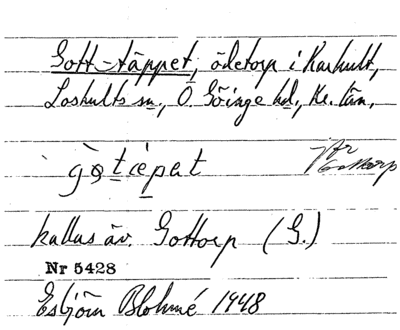 Gott-täppet, ödetorp i Karhult,
Loshults sn., Ö. Göinge hd., Kr. län,
gọtę́pet
jfr
Gottorp
kallas äv. Gottorp (G.)
Nr 5428
Esbjörn Blohmé 1948